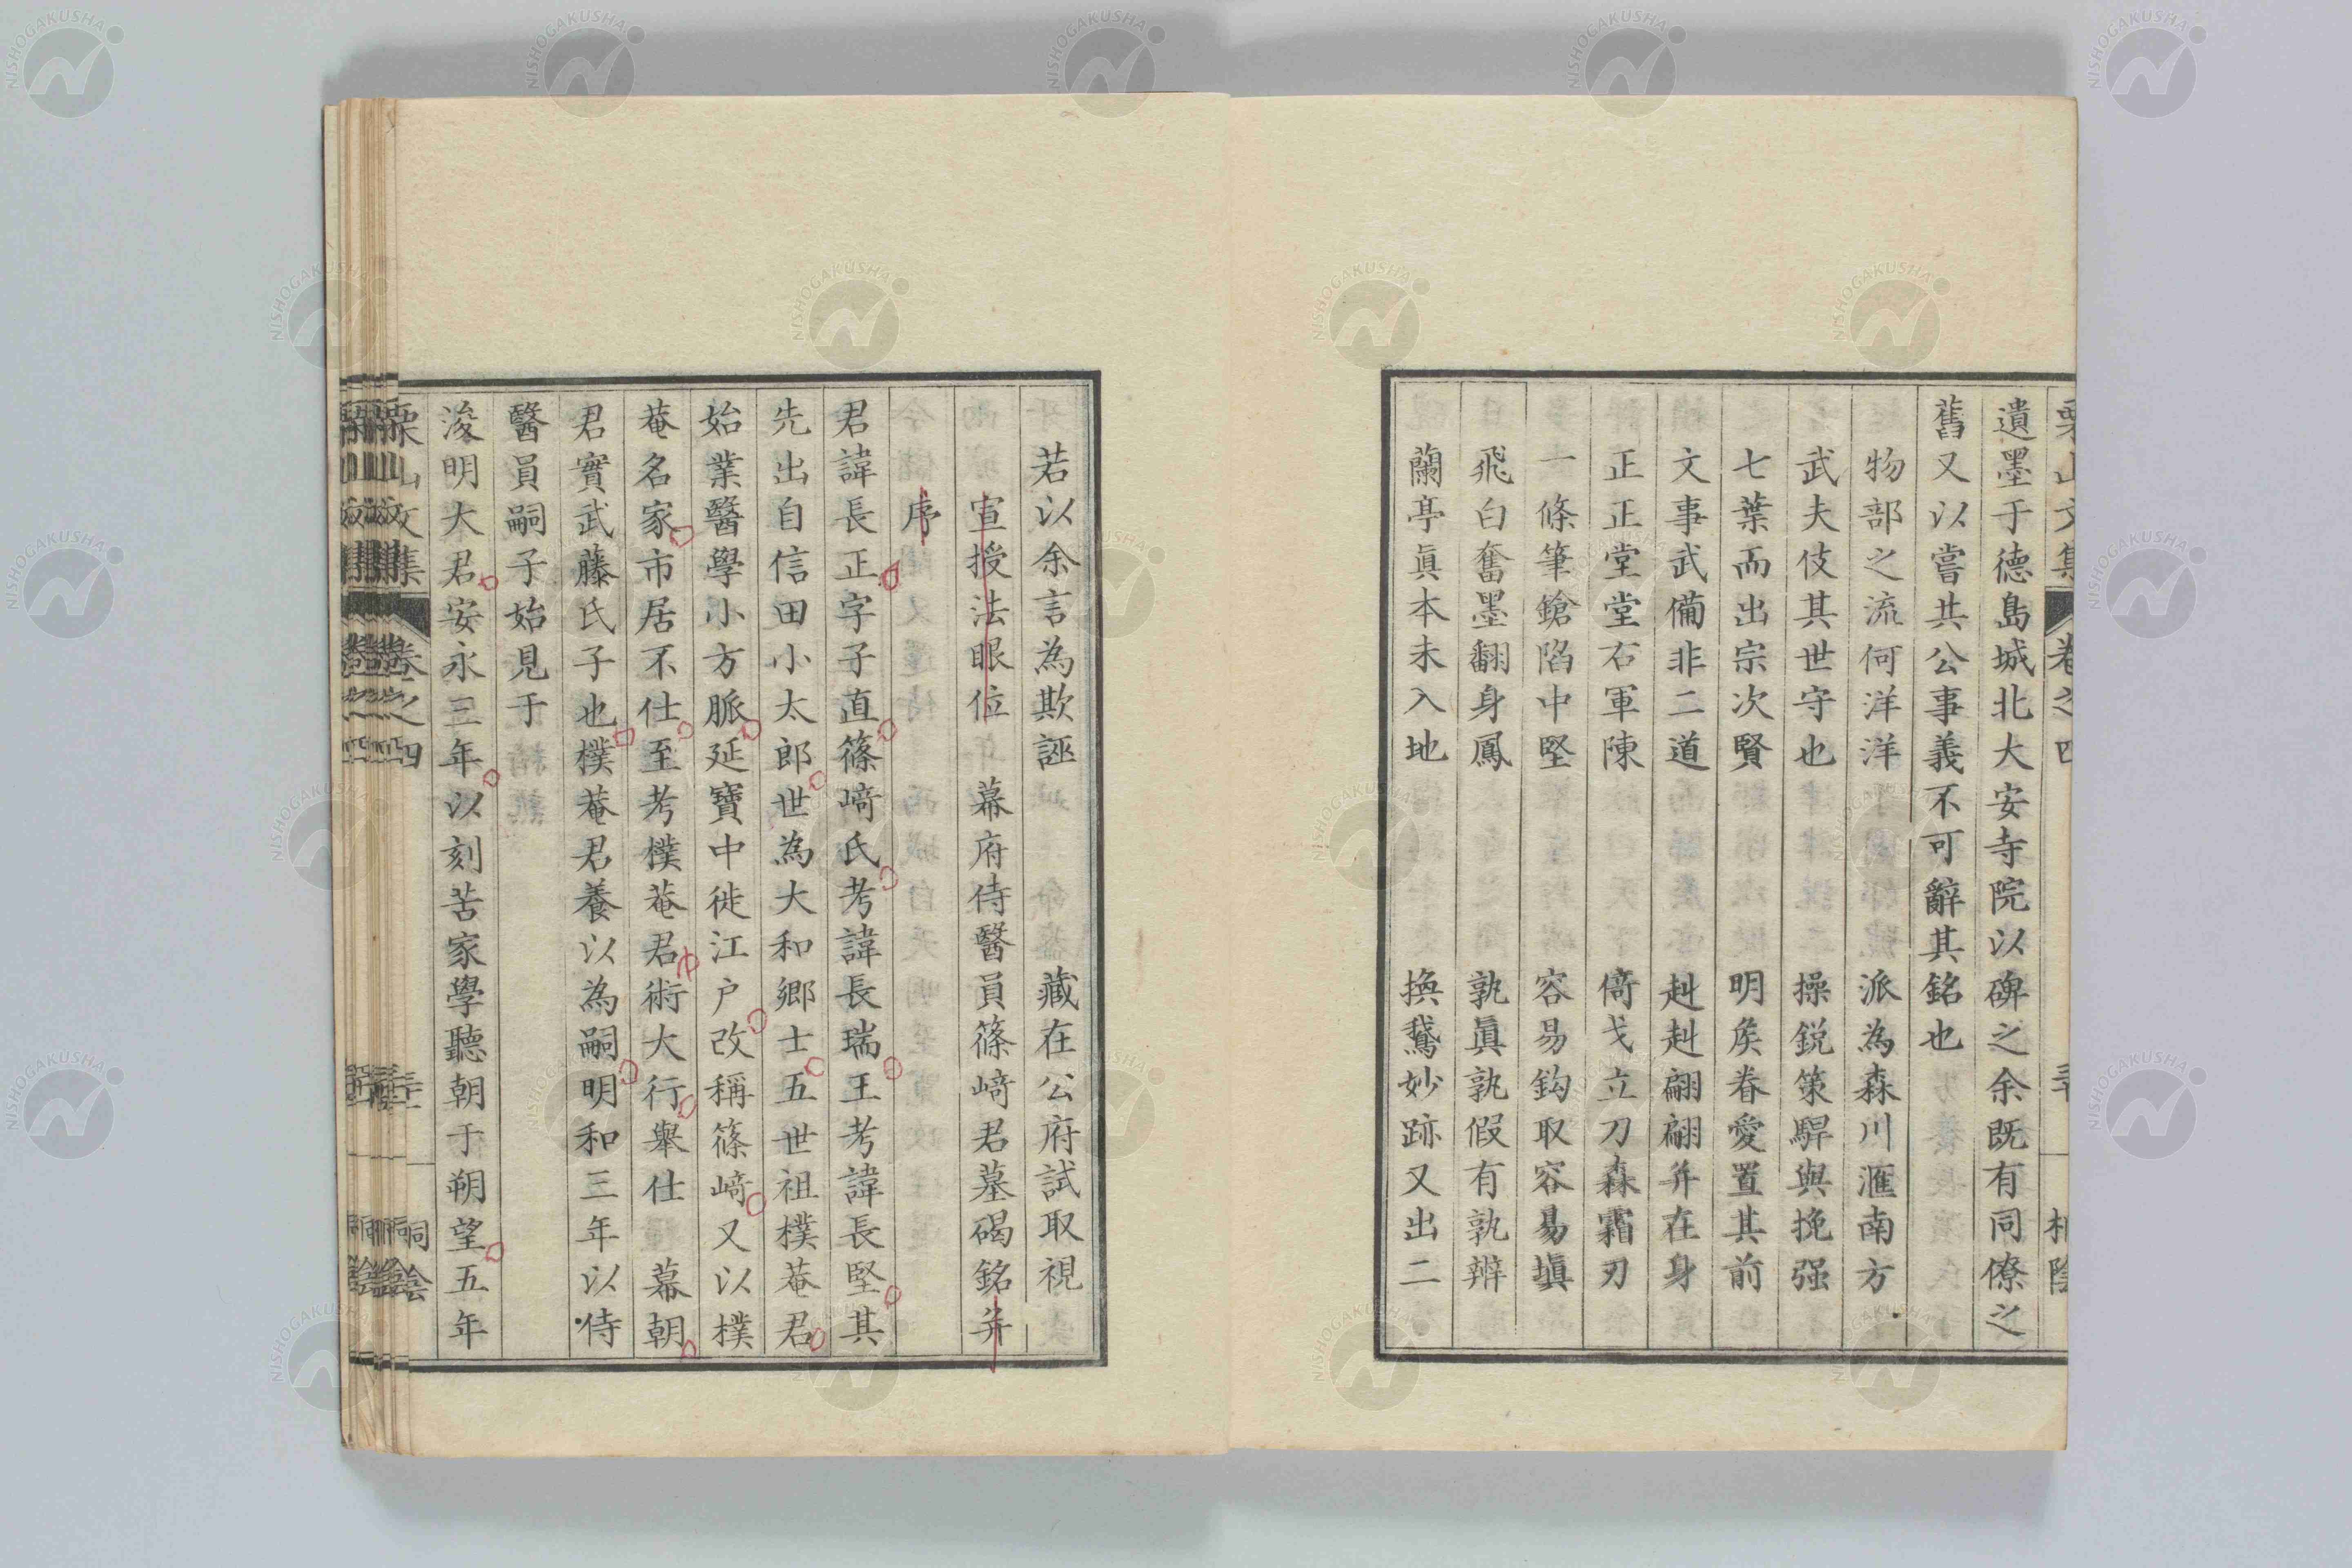 遺墨于德島城北大安寺院以碑之余既有同僚之
舊又以嘗共公事義不可辭其銘也
物部之流何洋洋　派為森川滙南方
武夫伎其世守也　操鋭策駻與挽强
七葉而出宗次賢　明矦眷愛置其前
文事武備非二道　赳赳翩翩并在身
正正堂堂石軍陳　倚戈立刀森霜刃
一條筆鎗陷中堅　容易鈎取容易塡
飛白奮墨翻身鳳　孰眞孰假有孰辨
蘭亭眞本未入地　換鵞妙跡又出二
若以余言為欺誣　藏在公府試取視
宣授法眼位　幕府侍醫員篠﨑君墓碣銘并
序
君諱長正字子直篠﨑氏考諱長瑞王考諱長堅其
先出自信田小太郎世為大和郷士五世祖樸菴君
始業醫學小方脈延寶中徙江户改稱篠﨑又以樸
菴名家市居不仕至考樸菴君術大行舉仕　幕朝
君實武藤氏子也樸菴君養以為嗣明和三年以侍
醫員嗣子始見于
浚明大君安永三年以刻苦家學聽朝于朔望五年
栗山文集　卷之四